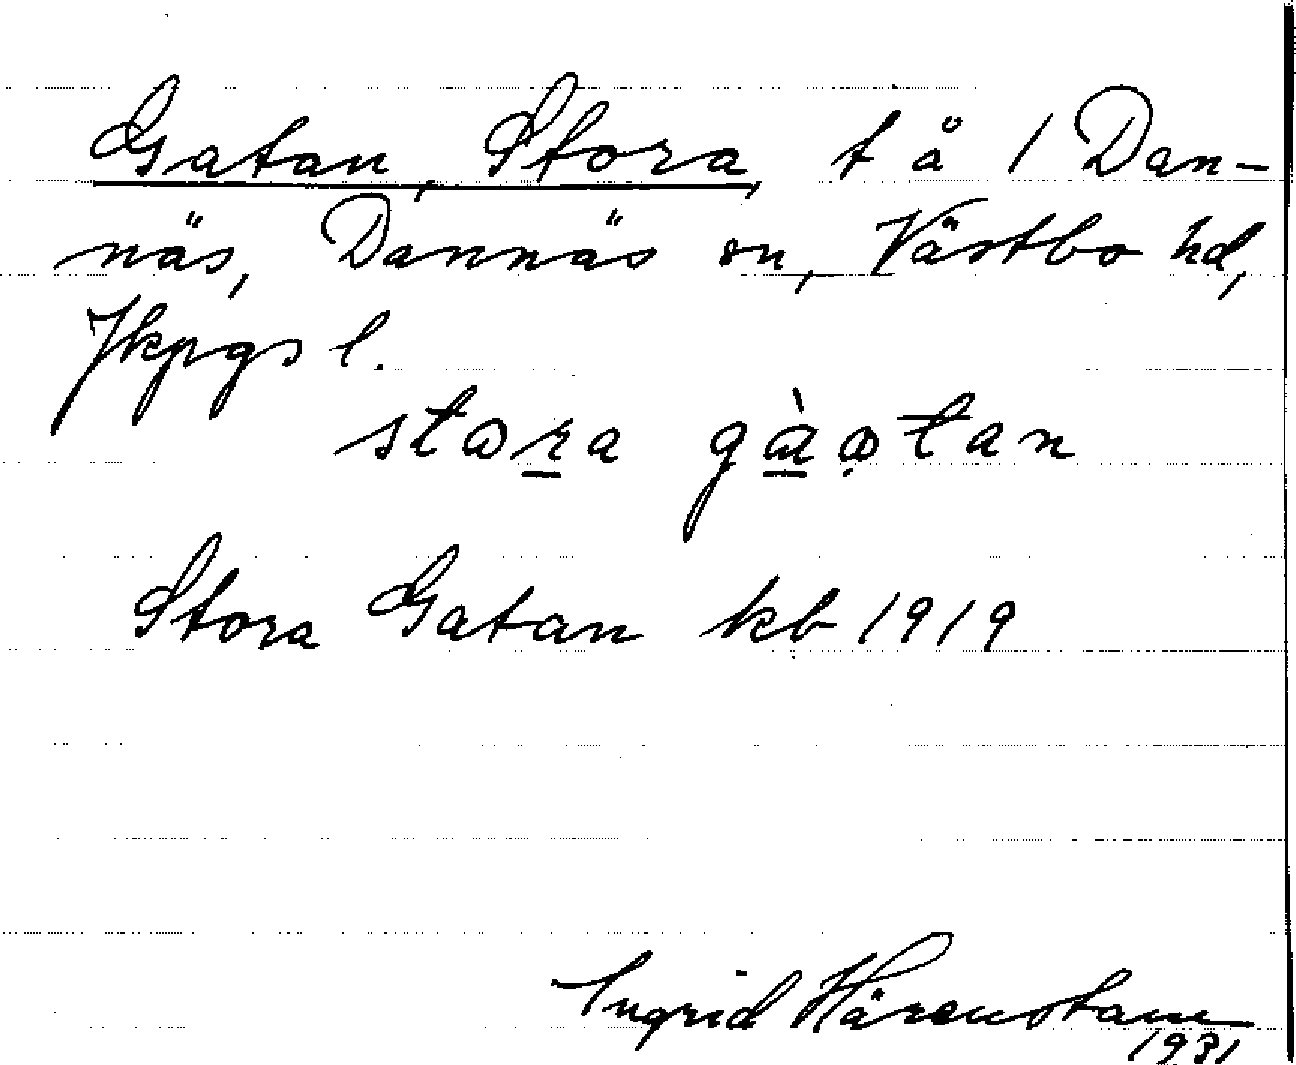 Gatan, Stora, t å 1 Dan-
näs, Dannäs sn, Västbo hd,
Jkpgs l.
stora
Stora Gatan kb 1919
Ingrid Härenstam
1931